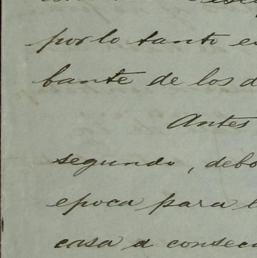 por lo tanto e
bante de los d
Antes
segundo, debo
epoca para l
casa a consecu